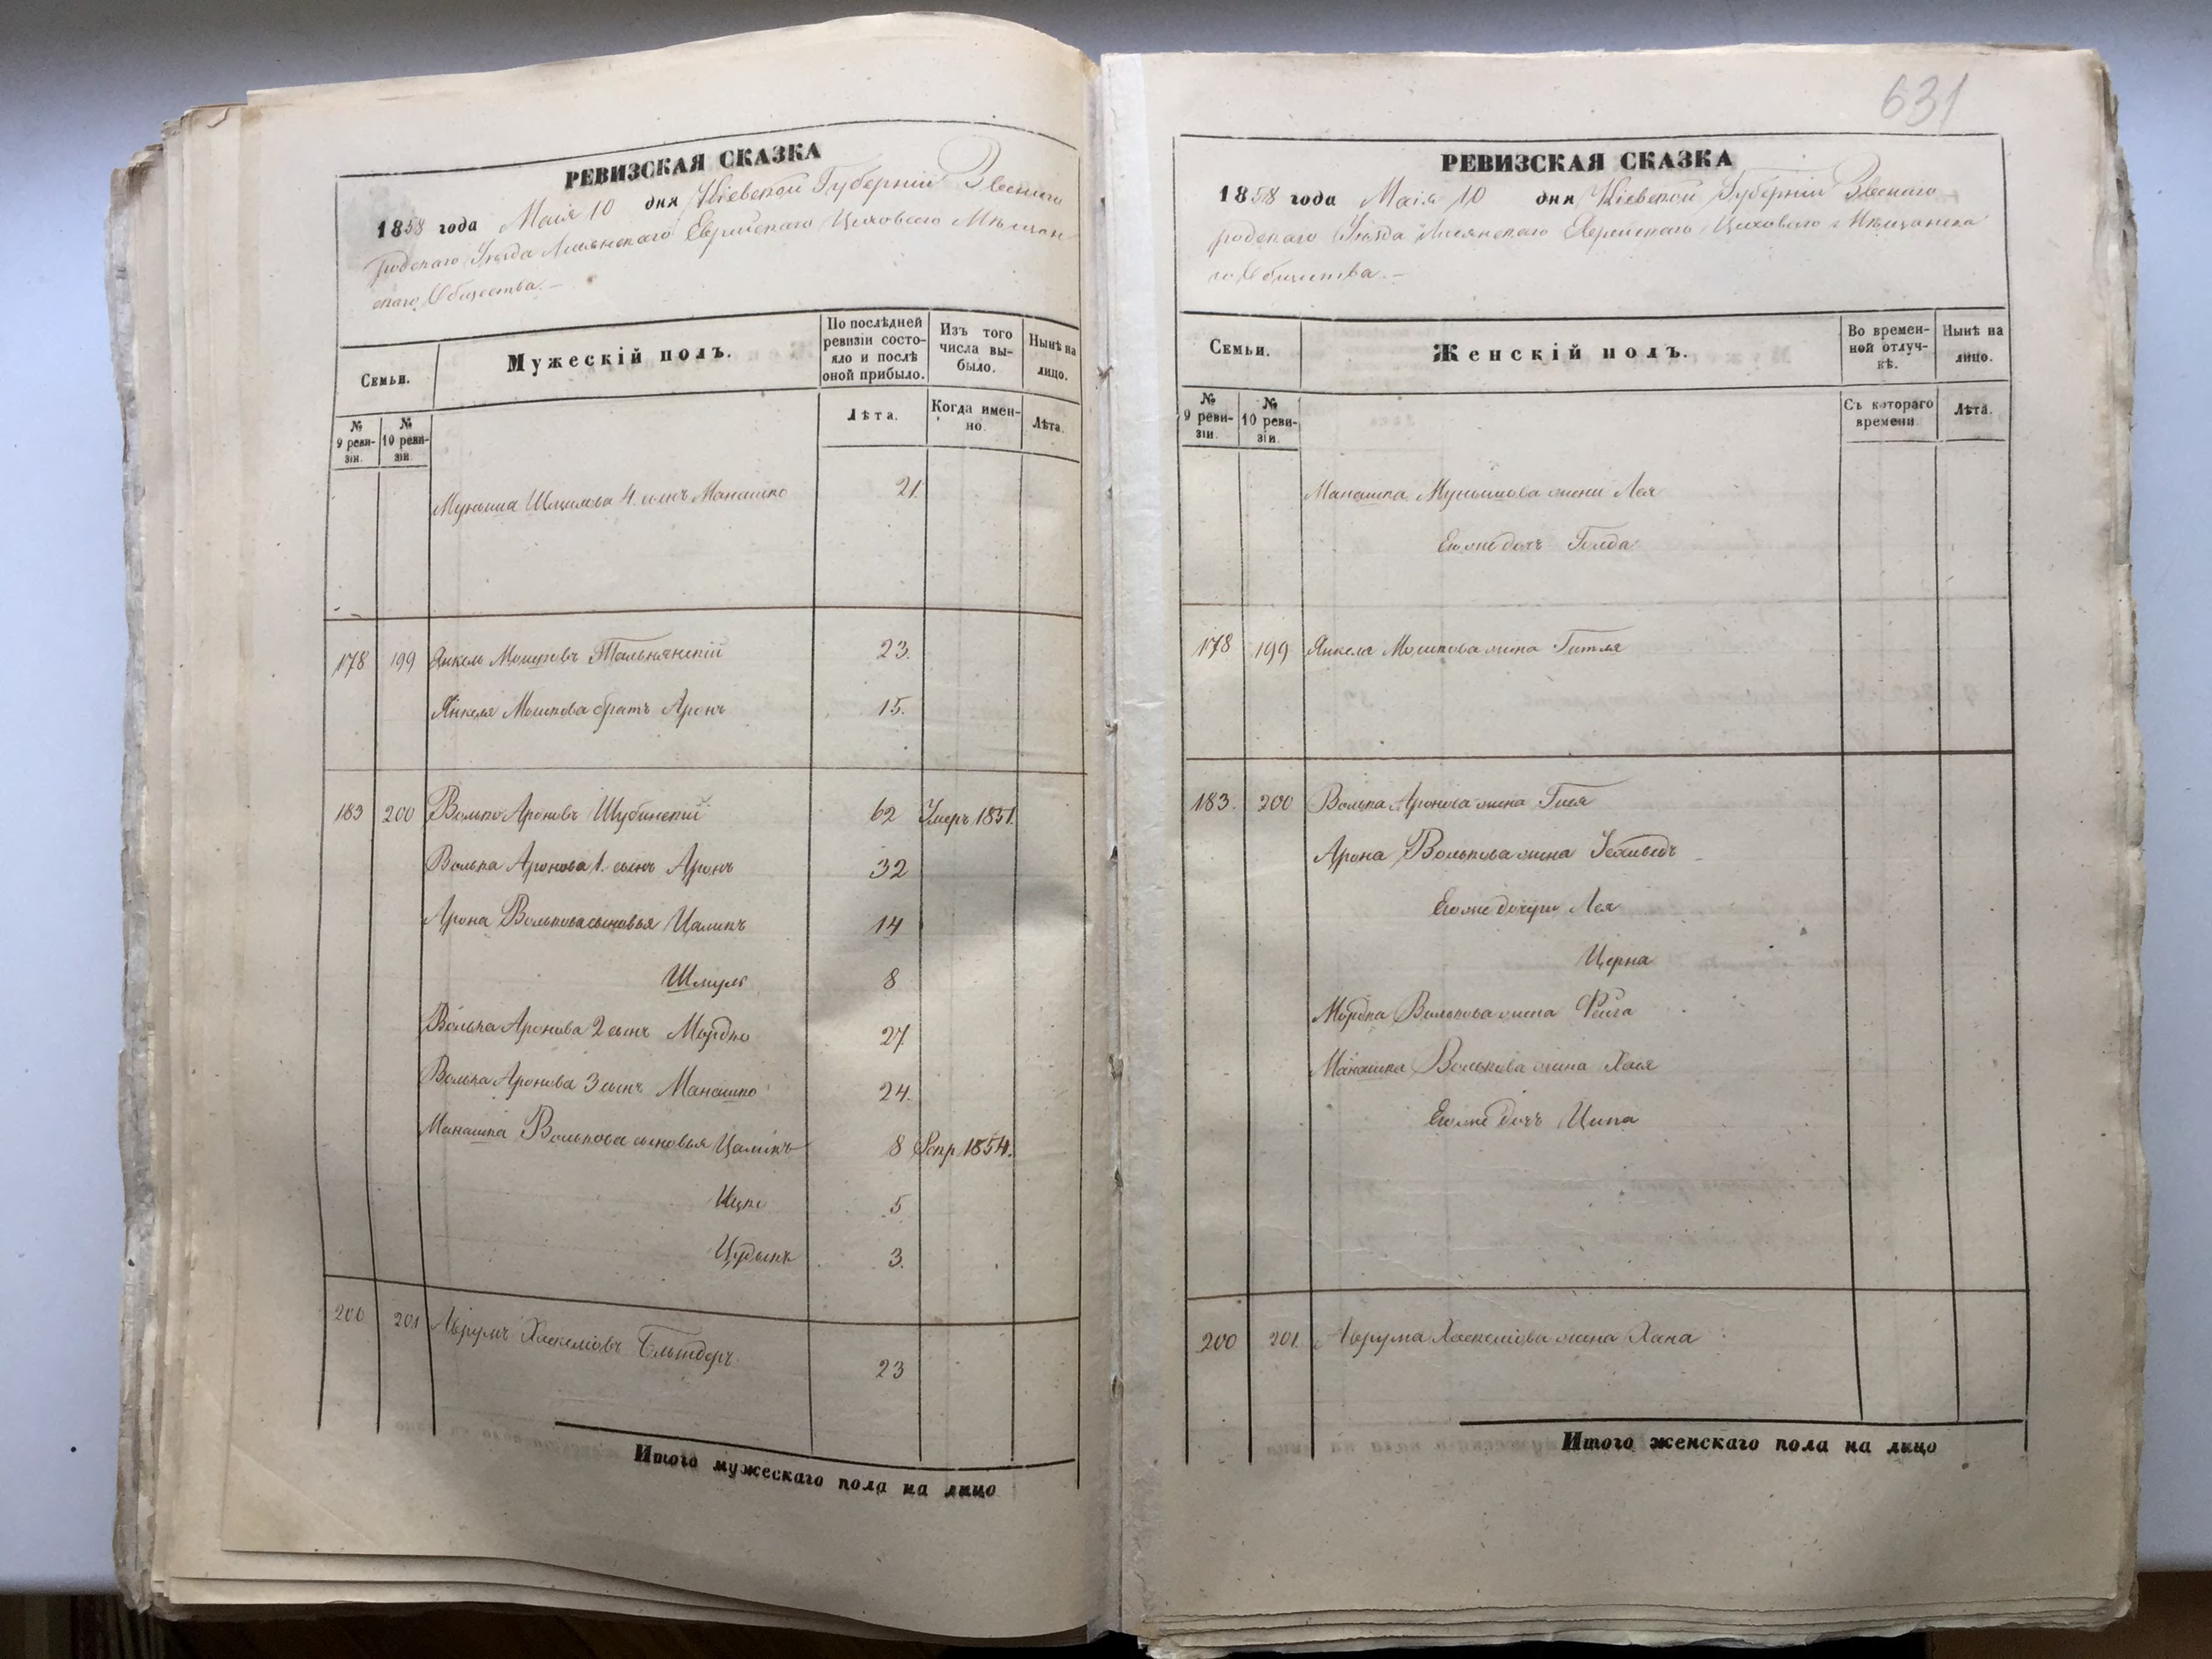 РЕВИЗСКАЯ СКАЗКА
1858 года Маія 10 дня Кіевской Губерніи Звениго
родскаго Уѣзда Лисянскаго Еврейскаго Цеховаго Мѣщан
скаго Общества.—
Семьи.
Мужескій полъ.
По послѣдней ревизіи состояло и послѣ оной прибыло.
Изъ того числа выбыло.
Нынѣ на лицо.
№ 9 ревизіи.
№ 10 ревизіи
Лѣта.
Когда именно.
Лѣта.
Муньиша 4. сынъ Манашко 21.
178 199 Янкель Мошковъ Тальнянскій 23.
Янкеля Мошкова братъ Аронъ 15.
183 200 Волько Ароновъ Шубинскій 62 Умеръ 1851.
Волька Аронова 1. сынъ Аронъ 32
Арона Волькова сыновья Цаликъ 14
Шмуль 8
Волька Аронова 2 сынъ Мордко 27
Волька Аронова 3 сынъ Манашко 24.
Манашка Волькова сыновья Цаликъ 8 1854.
Ицко 5
Цудыкъ 3.
200 201 Аврумъ Хаскелевъ 23
Итого мужескаго пола на лицо
631
РЕВИЗСКАЯ СКАЗКА
1858 года Маія 10 дня Кіевской Губерніи Звениго
родскаго Уѣзда Лисянскаго Еврейскаго Цеховаго Мѣщанска
го Общества.—
Семьи.
Женскій полъ.
Во временной отлучкѣ.
Нынѣ на лицо.
№ 9 ревизіи.
№ 10 ревизіи.
Съ котораго времени
Лѣта.
Манашка Муньишова жена Лея
Его же дочь Голда
178 199 Янкеля Мошкова жена Гитля
183. 200 Волька Аронова жена Гися
Арона Волькова жена
Его же дочери Лея
Церна
Мордка Волькова жена Фейга
Манашка Волькова жена Хая
Его же дочь Ципа
200 201. Аврума Хаскелева жена Хана
Итого женскаго пола на лицо